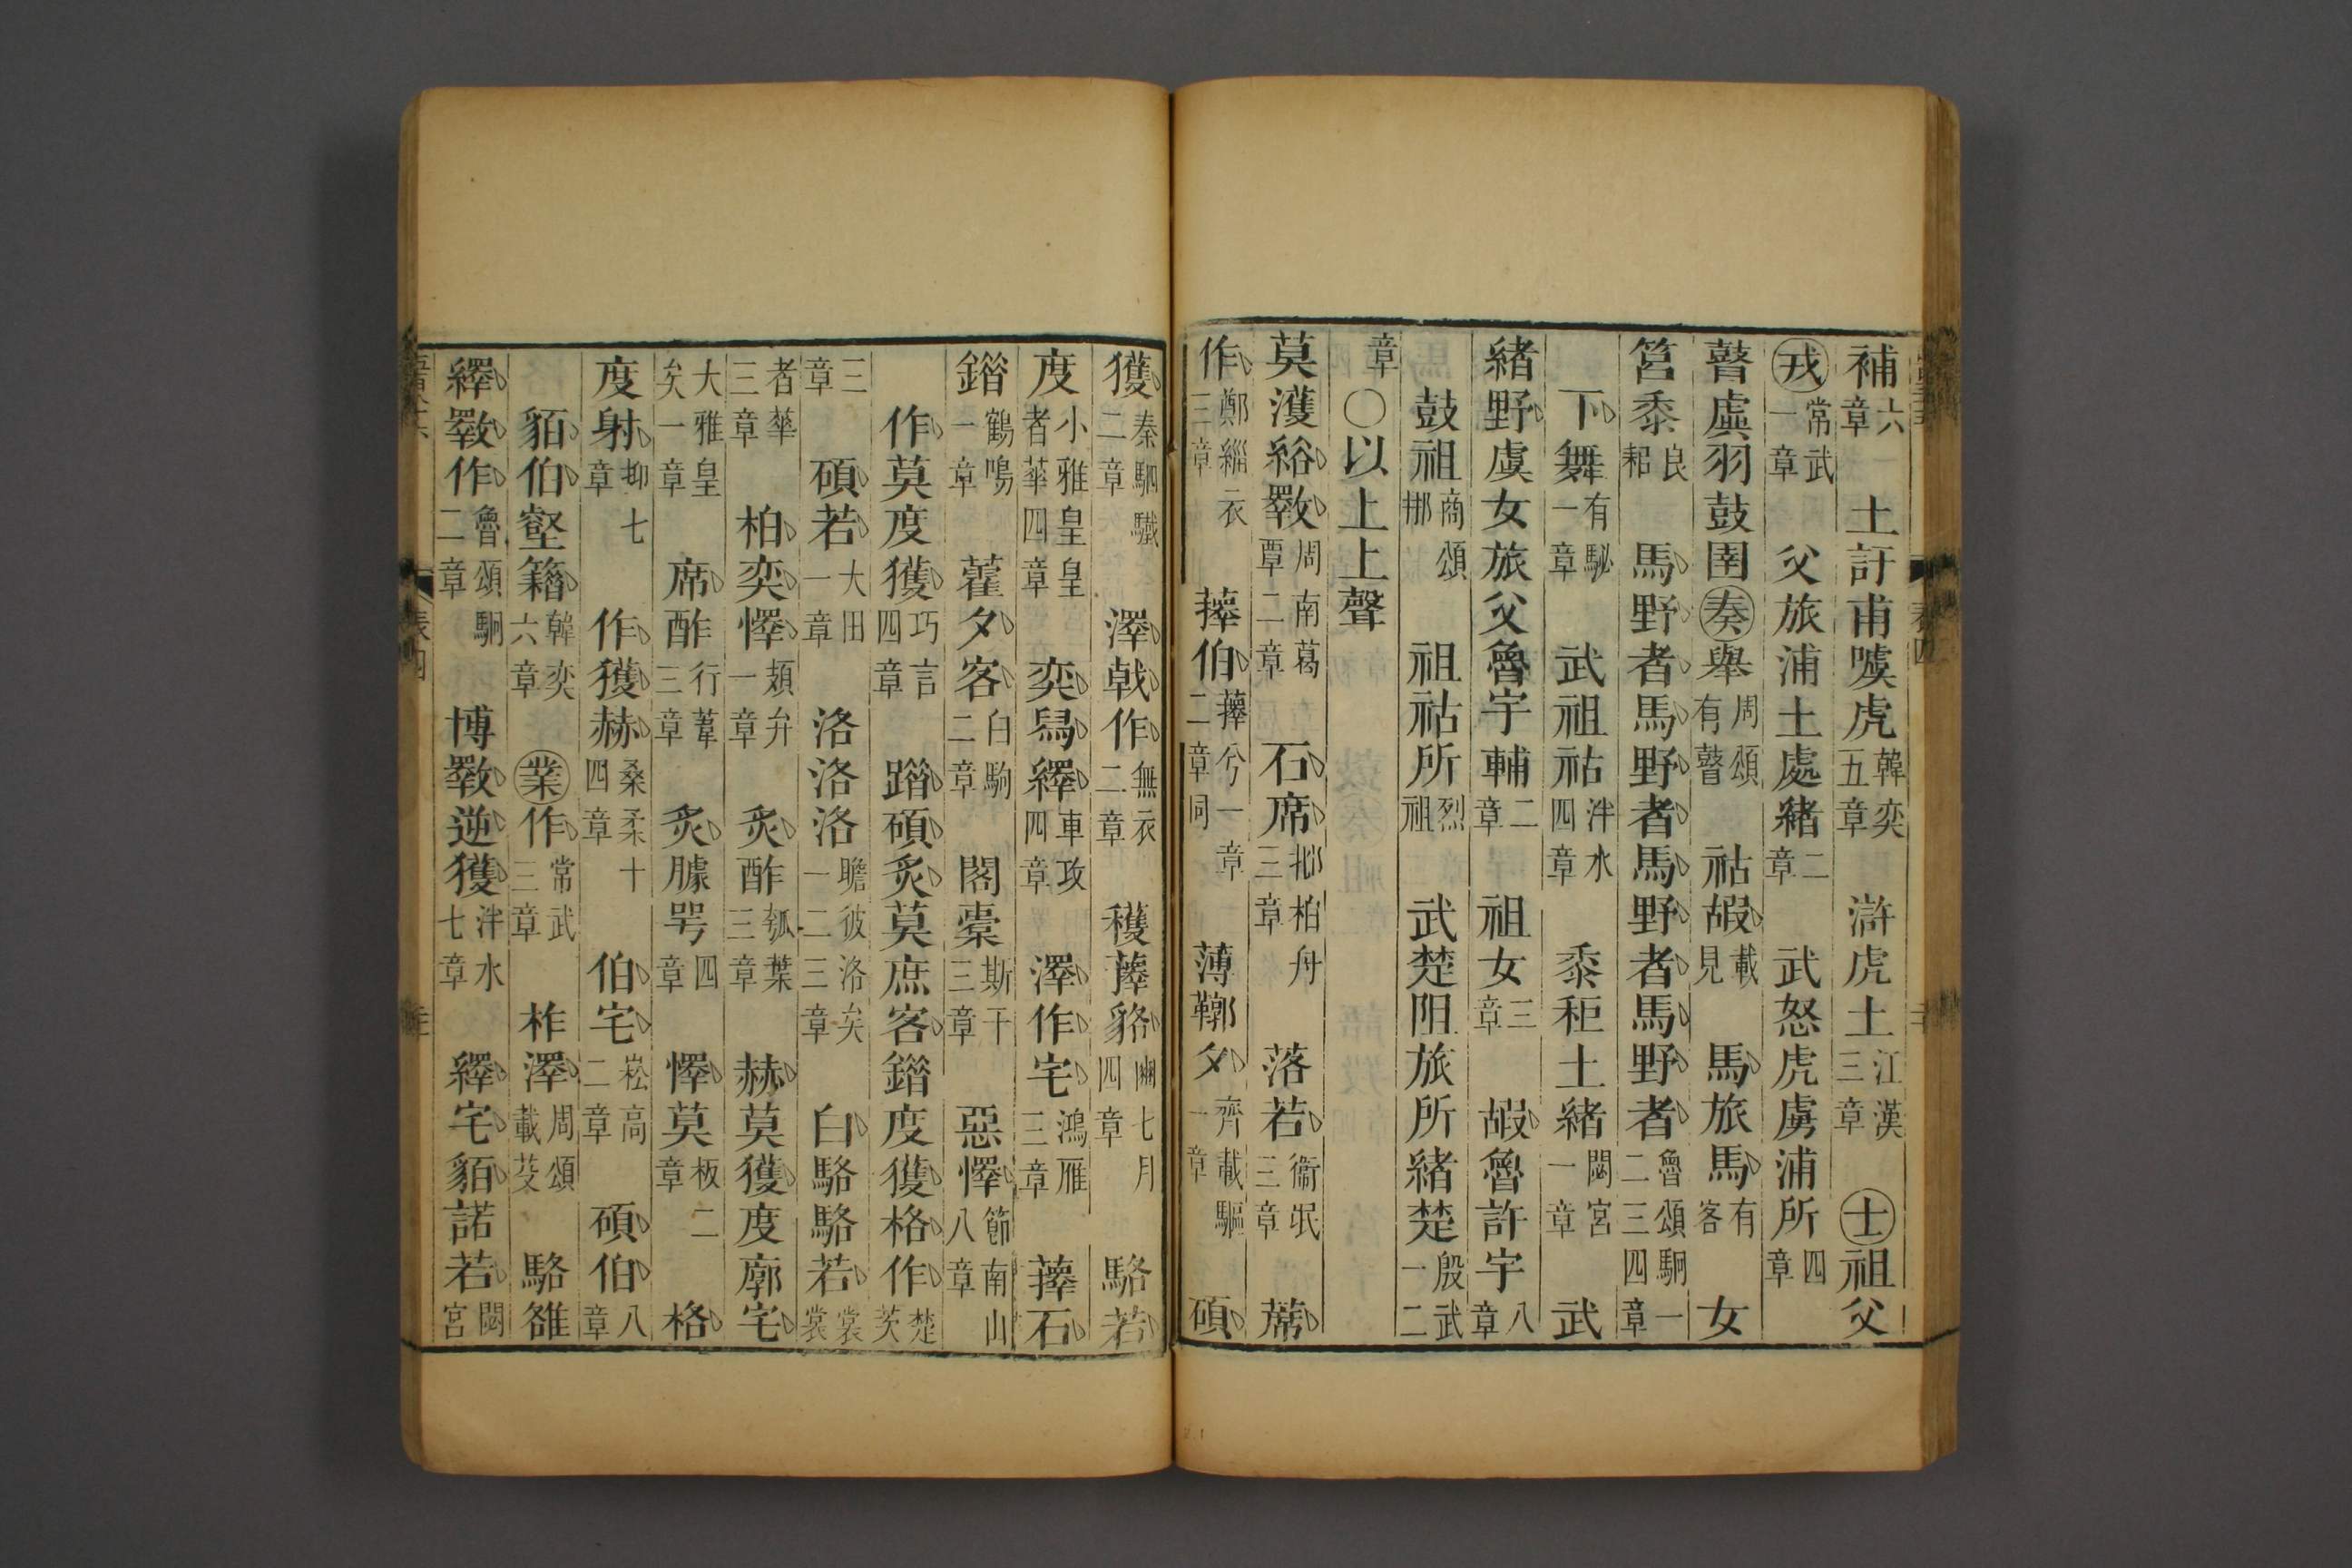 補六章 土訏甫噳虎韓奕五章 滸虎土江漢三章 士祖父
戎常武一章 父旅浦土處緒二章 武怒虎虜浦所四章
瞽虡羽鼓圉奏舉周頌有瞽 祜嘏載見 馬旅馬有客 女
筥黍良耜 馬野者馬野者馬野者馬野者魯頌駉一二三四章
下舞有駜一章 武祖祜泮水四章 黍秬土緒閟宮一章 武
緒野虞女旅父魯宇輔二章 祖女三章 嘏魯許宇八章
鼓祖商頌那 祖祜所烈祖 武楚阻旅所緒楚殷武一二
章○以上上聲
莫濩綌斁周南葛覃二章 石席邶柏舟三章 落若衞氓三章 蓆
作鄭緇衣三章 蘀伯蘀兮一章二章同 薄鞹夕齊載驅一章 碩
獲秦駟驖二章 澤戟作無衣二章 穫蘀貉豳七月四章 駱若
度小雅皇皇者華四章 奕舄繹車攻四章 澤作宅鴻雁三章 蘀石
錯鶴鳴一章 藿夕客白駒二章 閣橐斯干三章 惡懌節南山八章
作莫度獲巧言四章 踖碩炙莫庶客錯度獲格作楚茨
三章 碩若大田一章 洛洛洛瞻彼洛矣一二三章 白駱駱若裳裳
者華三章 柏奕懌頍弁一章 炙酢瓠葉三章 赫莫獲度廓宅
大雅皇矣一章 席酢行葦三章 炙臄咢四章 懌莫板二章 格
度射抑七章 作獲赫桑柔十四章 伯宅崧高二章 碩伯八章
貊伯壑籍韓奕六章 業作常武三章 柞澤周頌載芟 駱雒
繹斁作魯頌駉二章 博斁逆獲泮水七章 繹宅貊諾若閟宮
表四